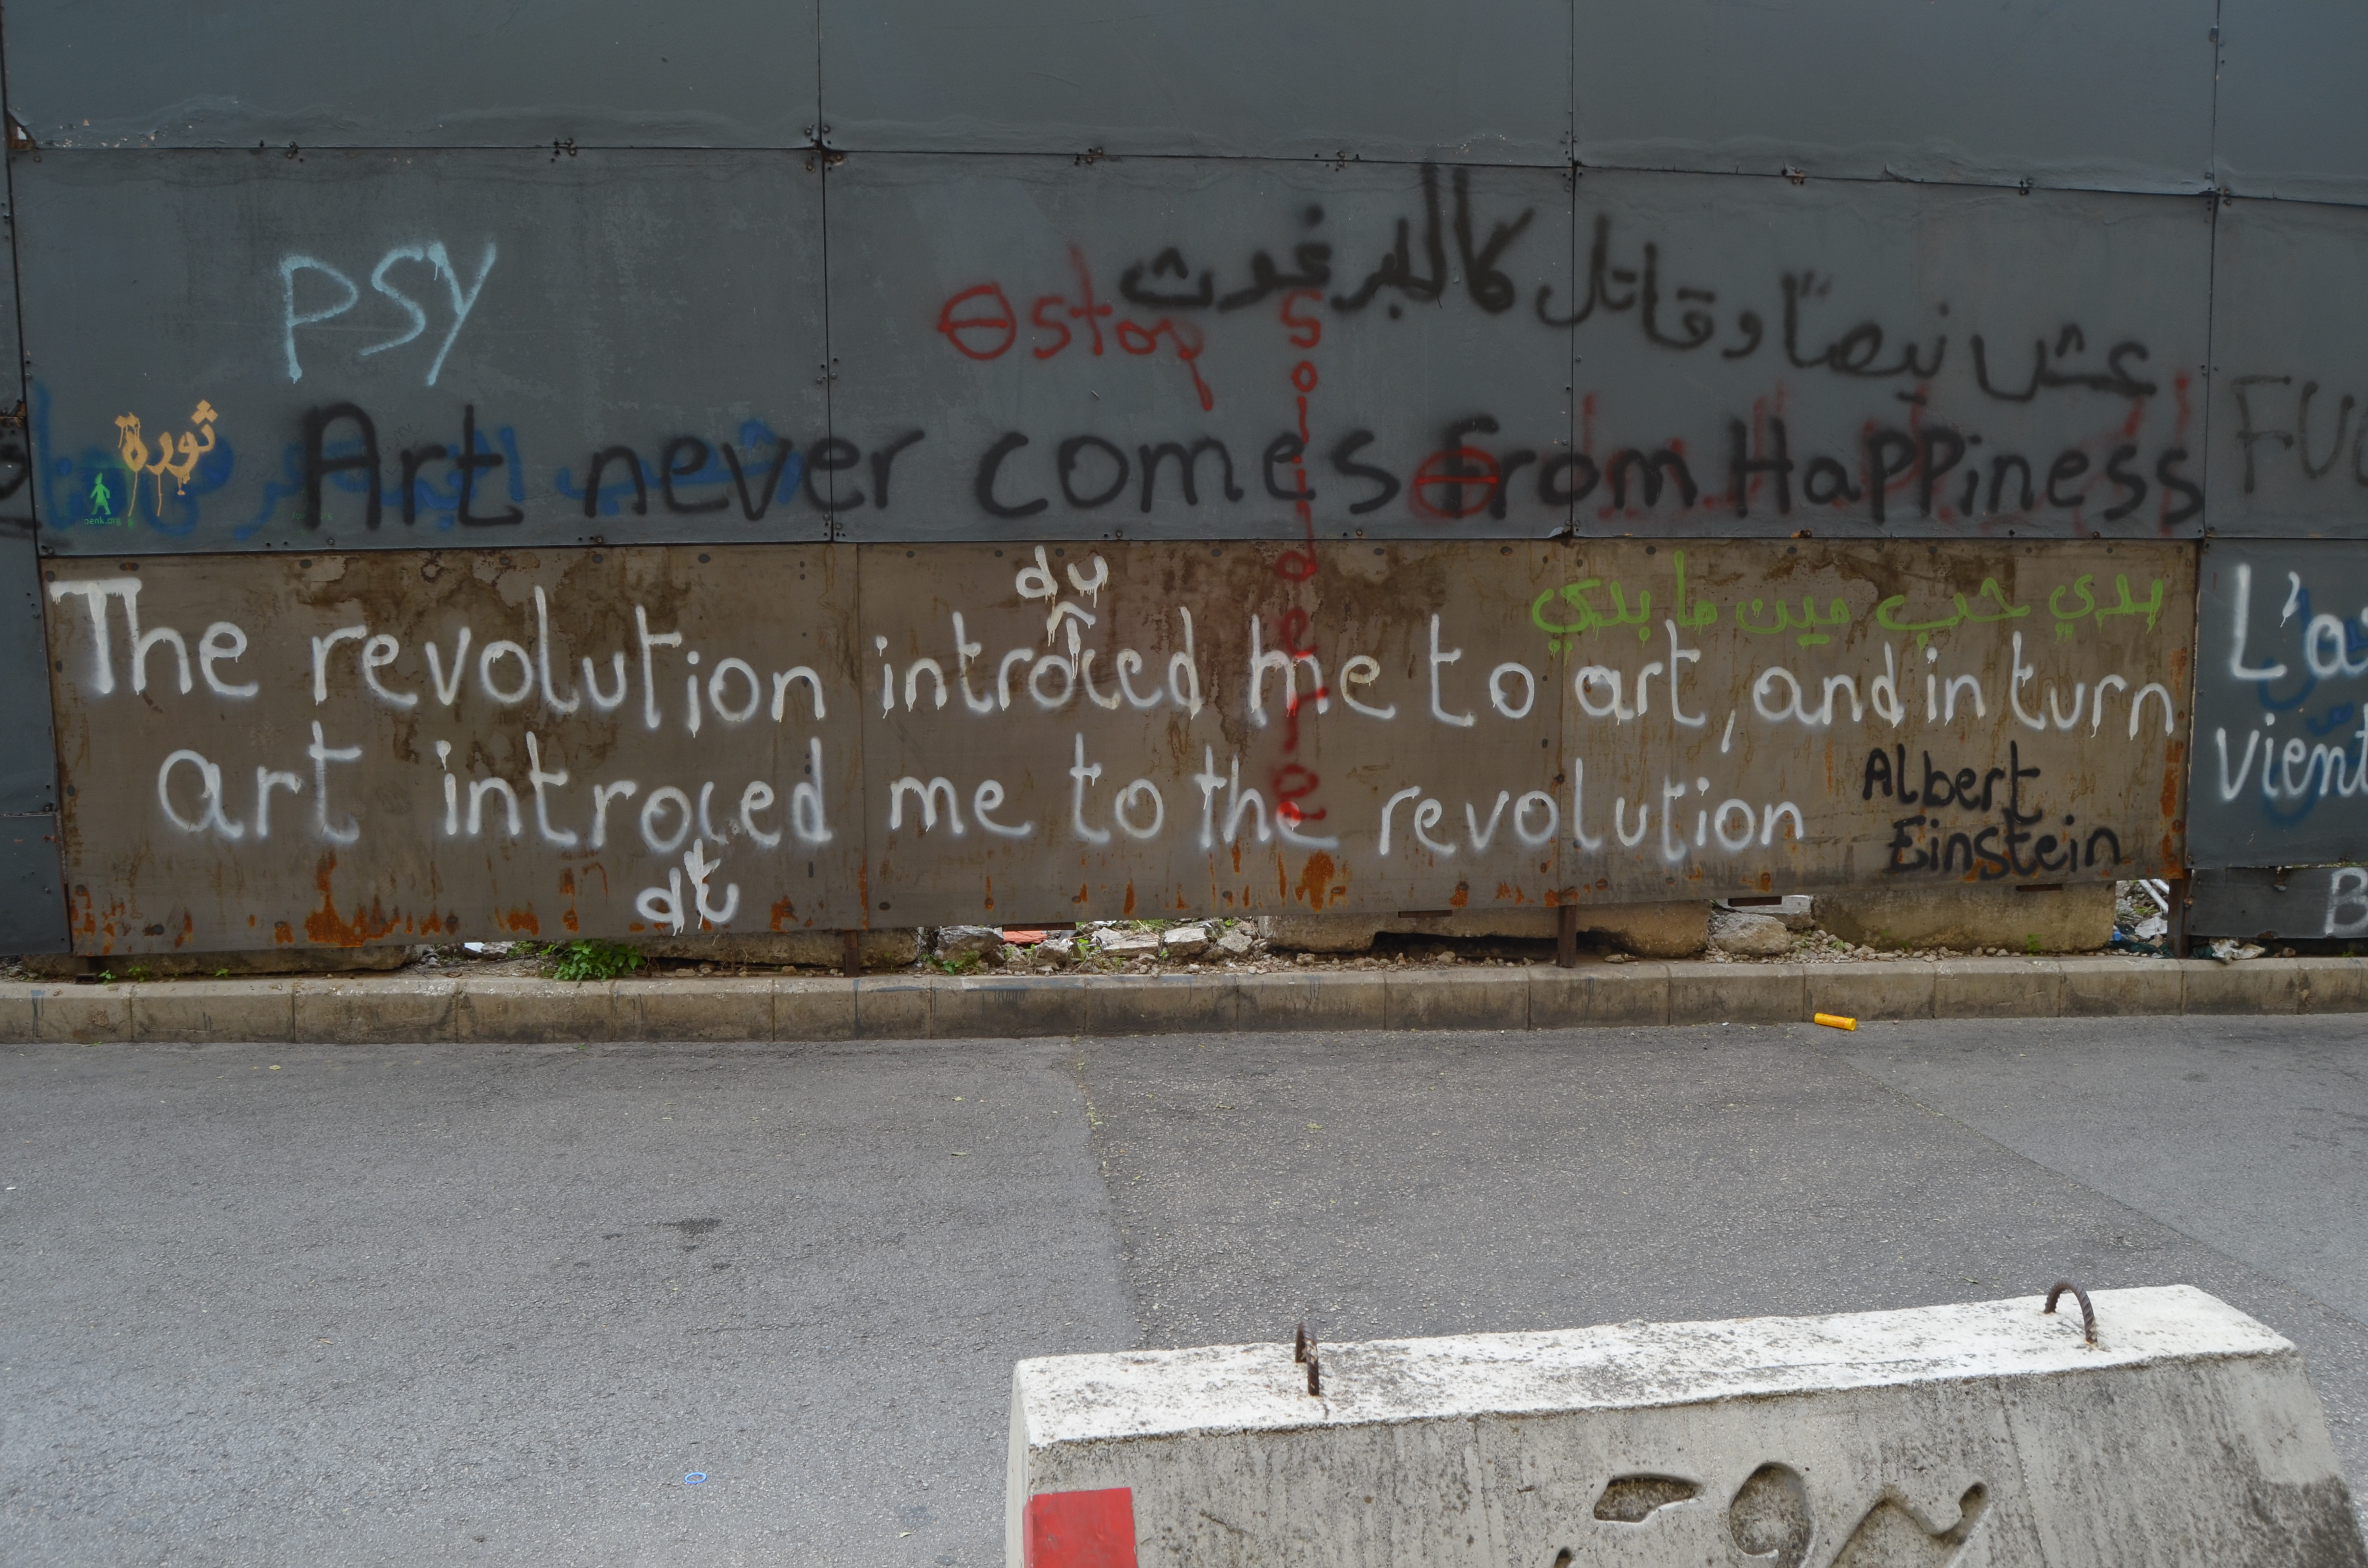 PSY
عش نيصًا وقاتل كالبرغوث
stop
ثورة
Art never comes from Happiness
Solidere
بدي حب مين ما بدي
The revolution introced me to art, and in turn
du
art introced me to the revolution
du
Albert
Einstein
L'a
vient
B
FUC